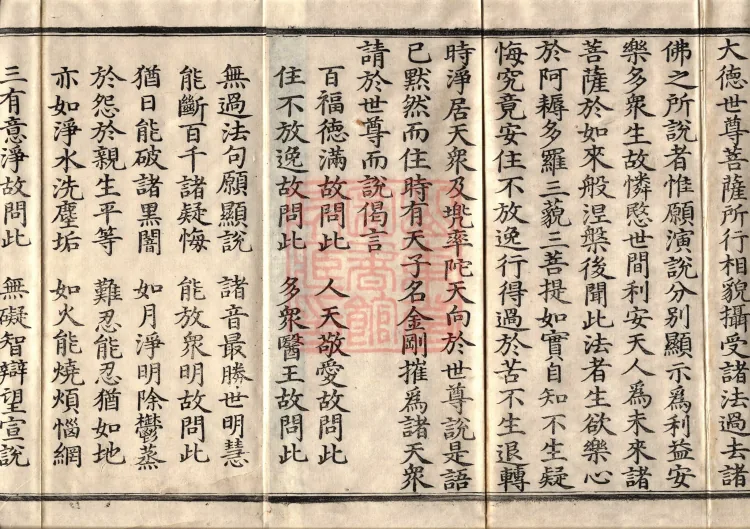 大德世尊菩薩所行相貌攝受諸法過去諸
佛之所說者惟願演說分別顯示爲利益安
樂多衆生故憐愍世間利安天人爲未來諸
菩薩於如來般涅槃後聞此法者生欲樂心
於阿耨多羅三藐三菩提如實自知不生疑
悔究竟安住不放逸行得過於苦不生退轉
時淨居天衆及兠率陀天向於世尊說是語
已默然而住時有天子名金剛摧爲諸天衆
請於世尊而說偈言
百福德滿故問此 人天敬愛故問此
住不放逸故問此 多衆醫王故問此
無過法句願顯說 諸音最勝世明慧
能斷百千諸疑悔 能放衆明故問此
猶日能破諸黑闇 如月淨明除鬱蒸
於怨於親生平等 難忍能忍猶如地
亦如淨水洗塵垢 如火能燒煩惱網
三有意淨故問此 無礙智辯望宣說